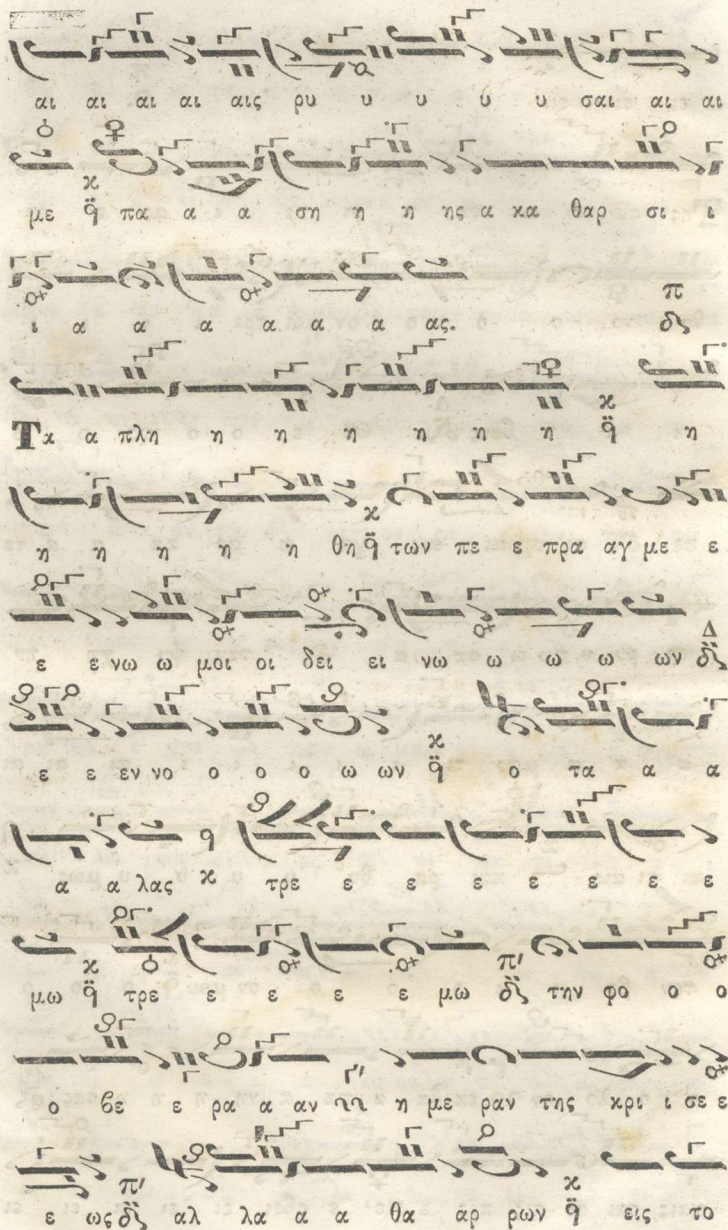 αι αι αι αι αις ρυ υ υ υ υ σαι αι αι
με ϗ πα α α ση η η ης α κα θαρ σι ι
ι α α α α α α ας. π
Τα α πλη η η η η η η ϗ η
η η η η η θη ϗ των πε ε πρα αγ με ε
ε ε νω ω μοι οι δει ει νω ω ω ω ων Δ
ε ε εν νο ο ο ο ω ων ϗ ο τα α α
α α λας ϗ τρε ε ε ε ε ε ε ε
μω ϗ τρε ε ε ε ε μω π' την φο ο ο
ο βε ε ρα α αν η με ραν της κρι ι σε ε
ε ως π' αλ λα α α θα αρ ρων ϗ εις το